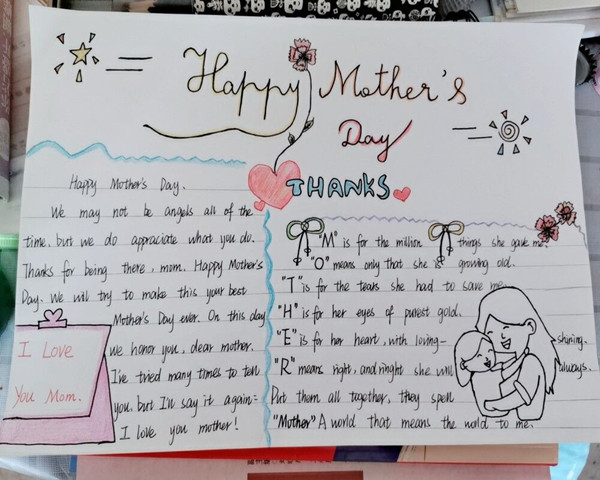 Happy Mother's
Day
THANKS
Happy Mother's Day.
We may not be angels all of the
time, but we do appraciate what you do.
Thanks for being there, mom. Happy Mother's
Day. We will try to make this your best
Mother's Day ever. On this day
we honor you, dear mother.
I've tried many times to tell
you, but I'll say it again:
I love you mother!
I Love
You Mom.
"M" is for the million things she gave me.
"O" means only that she is growing old.
"T" is for the tears she had to save me.
"H" is for her eyes of purest gold.
"E" is for her heart, with loving- shining.
"R" means right, and ringht she will always.
Put them all together, they spell
"Mother" A world that means the wold to me.